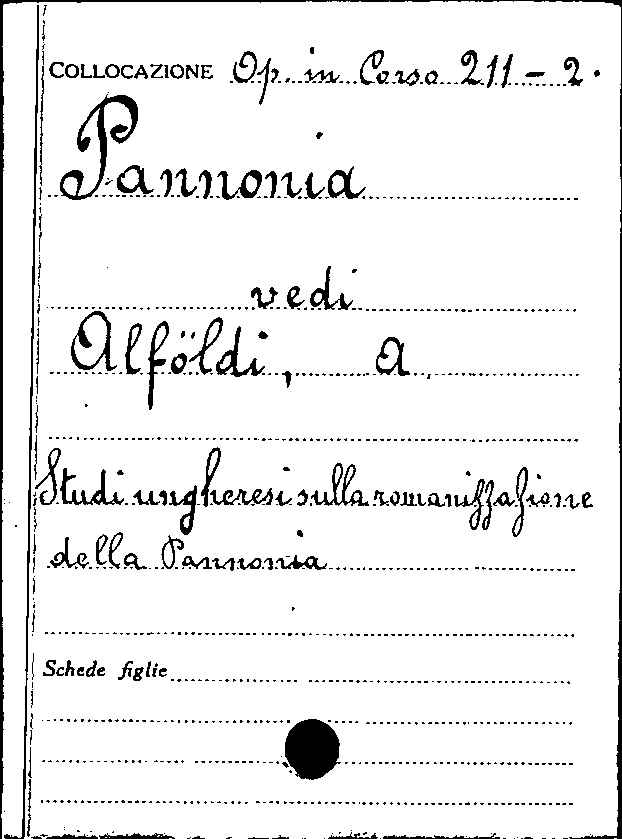 COLLOCAZIONE Op. in Corso 211 - 2.
Pannonia
vedi
Alföldi, A.
Studi ungheresi sulla romanizzazione
della Pannonia
Schede figlie